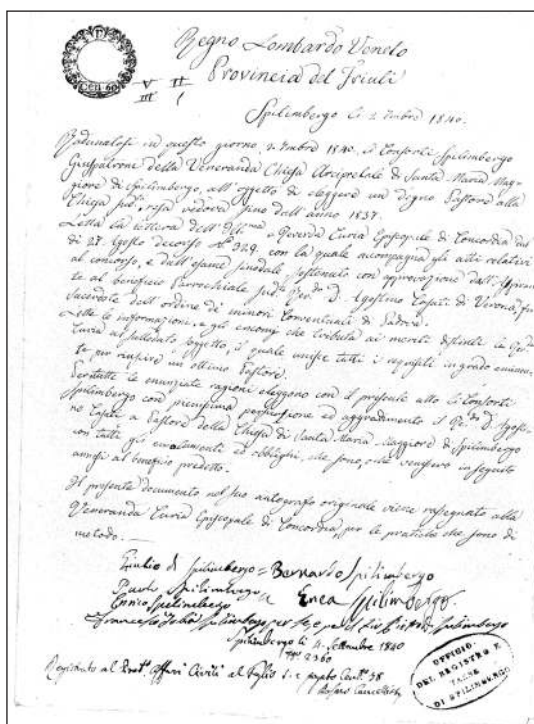 CEN. 60
V II
III I
Regno Lombardo Veneto
Provincia del Friuli
Spilimbergo li 2 7mbre 1840.
Radunatosi in questo giorno, 2. 7mbre 1840. il Consorti Spilimbergo
Giuspatroni della Veneranda Chiesa Arcipretale di Santa Maria Mag-
giore di Spilimbergo, all'oggetto di eleggere un degno Pastore alla
Chiesa sud.ª resa vedova sino dall'anno 1837.
Letta la lettera dell' Ill.ma e Rever.da Curia Episcopale di Concordia
di 27. Agosto decorso N.º 929. con la quale accompagna gli atti relativi
al concorso, e dall'esame sinodale sostenuto con approvazione dall'Aspiran-
te al beneficio Parrocchiale sud.º Rev.do D. Agostino Casati di Verona, fu
sacerdote dell'ordine de' minori Conventuali di Padova.
Lette le informazioni, e gli encomj che tributa ai meriti distinti la Rev.da
Curia al sullodato soggetto, il quale unisce tutti i requisiti in grado eminen-
te per riuscire un ottimo Pastore.
Per tutte le enunziate ragioni eleggono con il presente atto li Consorti
Spilimbergo con pienissima persuasione ed aggradimento il Rev.do D. Agosti-
no Casati a Pastore della Chiesa di Santa Maria Maggiore di Spilimbergo
con tutti gli emolumenti ed obblighi, che sono, o che venissero in seguito
annessi al beneficio predetto.
Il presente documento nel suo autografo originale viene rassegnato alla
Veneranda Curia Episcopale di Concordia, per le pratiche che sono di
metodo.
Giulio di Spilimbergo = Bernardo Spilimbergo
Paolo Spilimbergo Enea Spilimbergo.
Enrico Spilimbergo
Francesco Spilimbergo per se e per Spilimbergo
Spilimbergo li 4. Settembre 1840
N.º 2360
Registrato al Prot.º Affari Civili al Foglio
Cancellista
UFFICIO
DEL REGISTRO E
TASSE
DI SPILIMBERGO